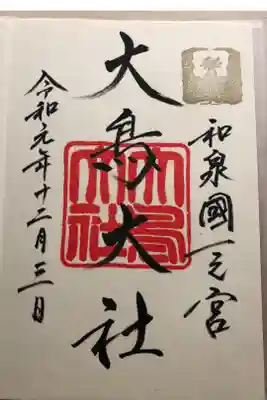 和泉國一之宮
大鳥大社
令和元年十二月三日
大鳥
大社